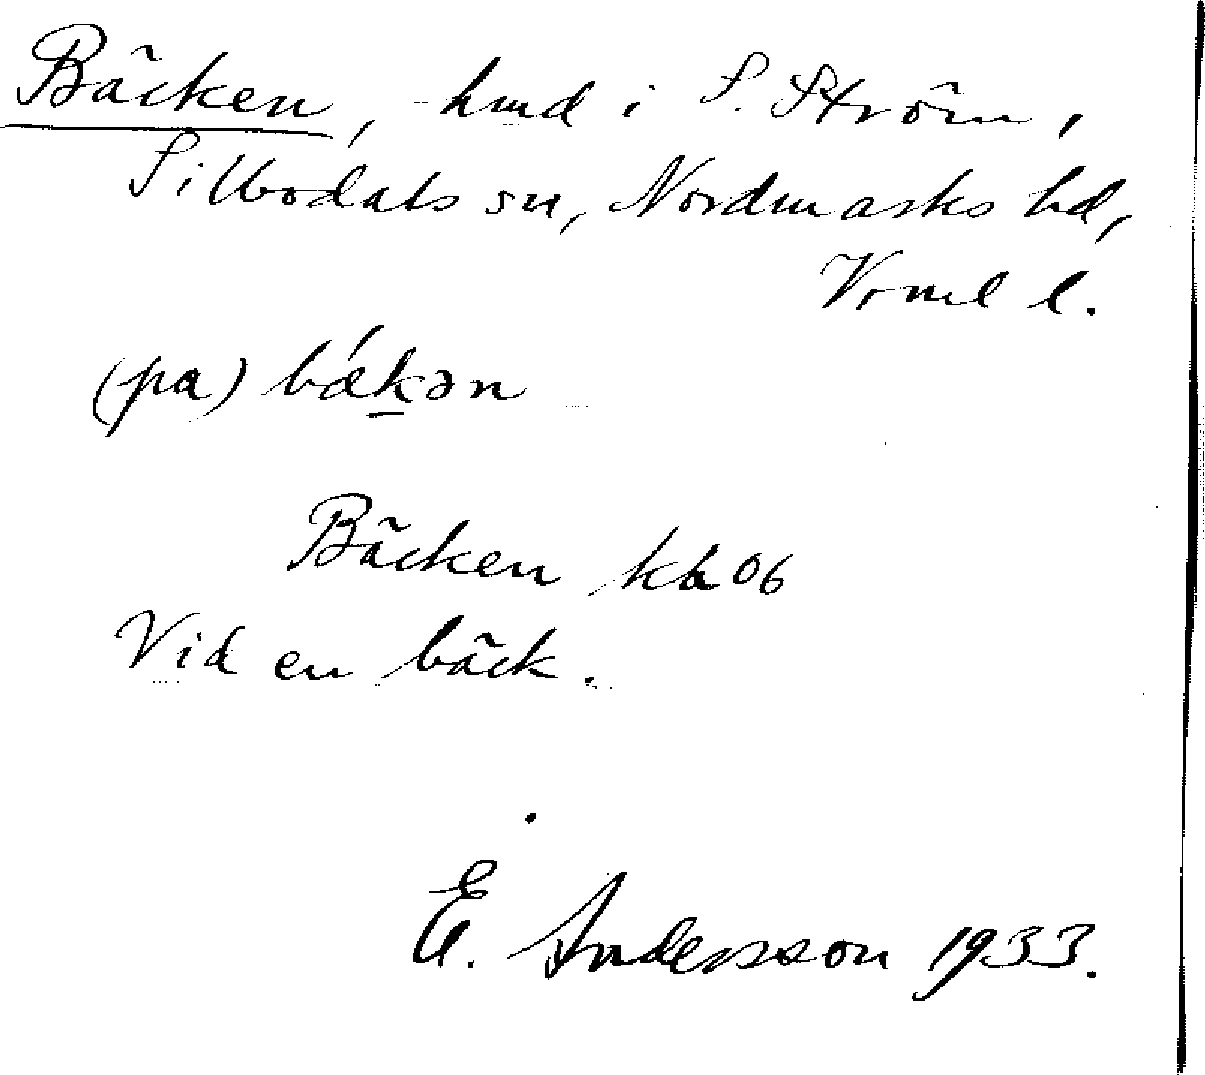 Bäcken, hmd i S. Ström,
Silbodals sn, Nordmarks hd,
Vrml l.
(pa) bǽk̲ən
Bäcken kb 06
Vid en bäck.
E. Andersson 1933.